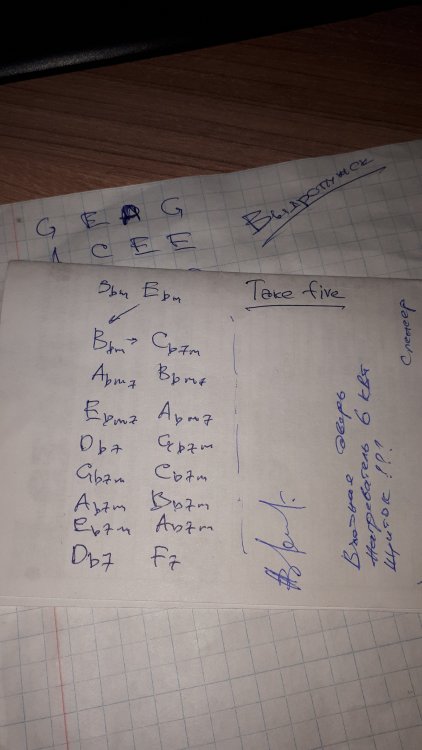 G E A G
A C E E
Выдропужск
Bbm Ebm
Take five
Bbm → Cb7m
Abm7 Bbm7
Ebm7 Abm7
Db7 Gb7m
Gb7m Cb7m
Ab7m Bb7m
Eb7m Ab7m
Db7 F7
Входная дверь
Нагреватель 6 квт
Щиток !!?